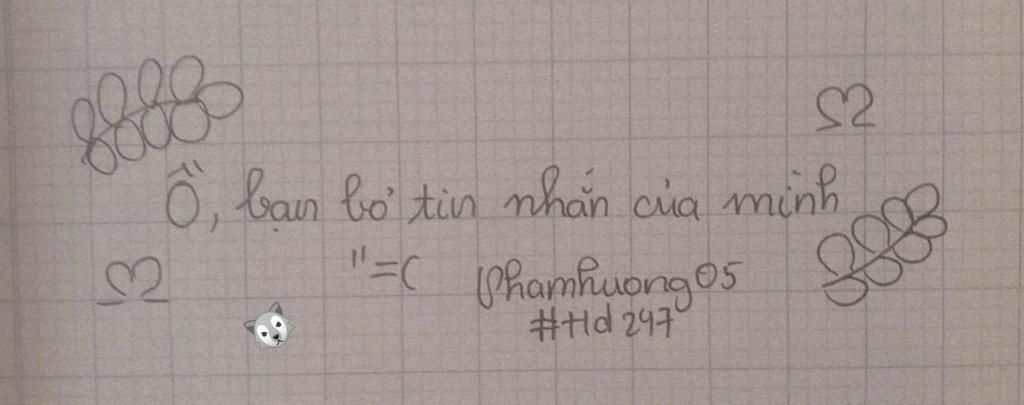 Ồ, bạn bơ tin nhắn của mình
"=( Phamhuong05
#Hd 297